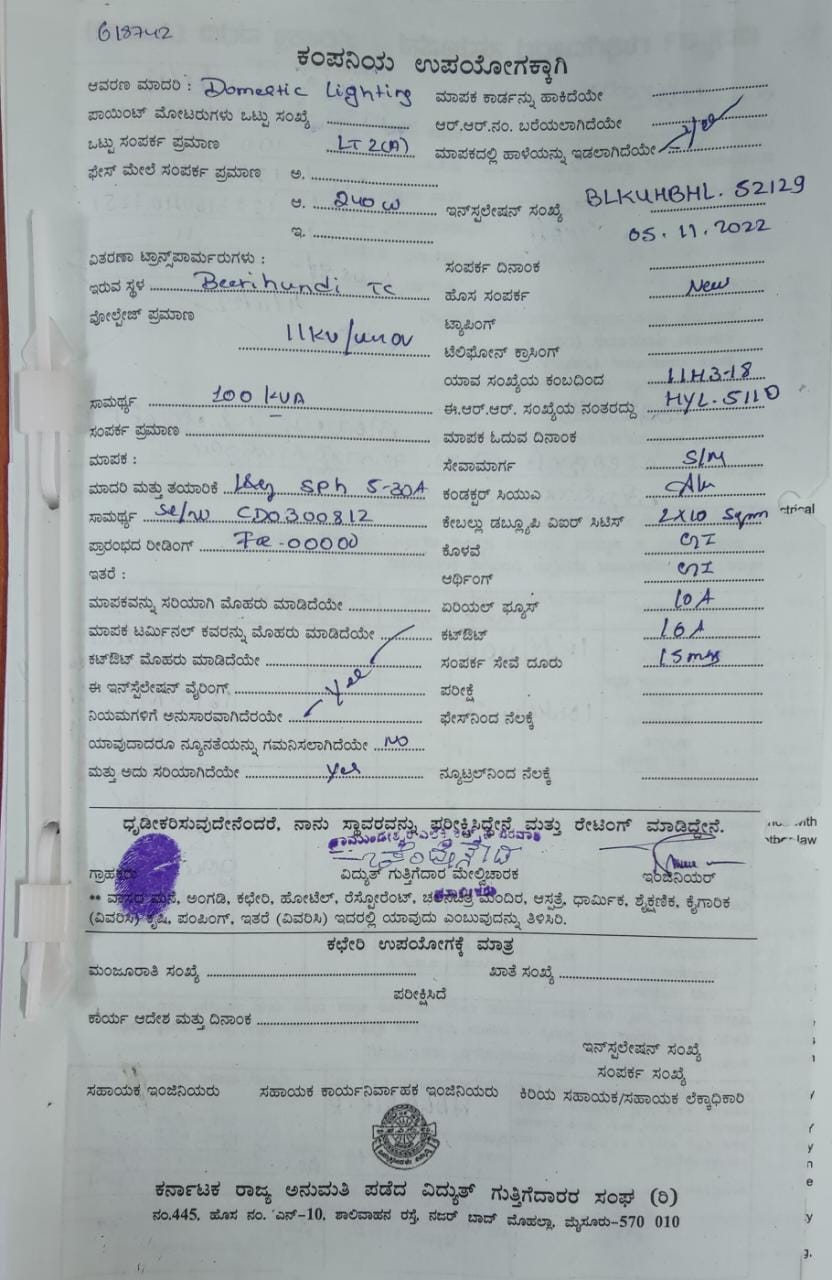 618742
ಕಂಪನಿಯ ಉಪಯೋಗಕ್ಕಾಗಿ
ಆವರಣ ಮಾದರಿ : Domestic Lighting
ಪಾಯಿಂಟ್ ಮೋಟರುಗಳು ಒಟ್ಟು ಸಂಖ್ಯೆ
ಒಟ್ಟು ಸಂಪರ್ಕ ಪ್ರಮಾಣ LT 2(A)
ಫೇಸ್ ಮೇಲೆ ಸಂಪರ್ಕ ಪ್ರಮಾಣ ಅ.
ಆ. 240 W
ಇ.
ವಿತರಣಾ ಟ್ರಾನ್ಸ್‌ಫಾರ್ಮರುಗಳು :
ಇರುವ ಸ್ಥಳ Beerihundi TC
ವೋಲ್ಟೇಜ್ ಪ್ರಮಾಣ
11KV/
ಸಾಮರ್ಥ್ಯ 100 KVA
ಸಂಪರ್ಕ ಪ್ರಮಾಣ
ಮಾಪಕ :
ಮಾದರಿ ಮತ್ತು ತಯಾರಿಕೆ SPh 5-30A
ಸಾಮರ್ಥ್ಯ Sl/no CD0300812
ಪ್ರಾರಂಭದ ರೀಡಿಂಗ್ 00000
ಇತರೆ :
ಮಾಪಕವನ್ನು ಸರಿಯಾಗಿ ಮೊಹರು ಮಾಡಿದೆಯೇ
ಮಾಪಕ ಟರ್ಮಿನಲ್ ಕವರನ್ನು ಮೊಹರು ಮಾಡಿದೆಯೇ
ಕಟ್‌ಔಟ್ ಮೊಹರು ಮಾಡಿದೆಯೇ
ಈ ಇನ್‌ಸ್ಟಲೇಷನ್ ವೈರಿಂಗ್ Yes
ನಿಯಮಗಳಿಗೆ ಅನುಸಾರವಾಗಿದೆರಯೇ
ಯಾವುದಾದರೂ ನ್ಯೂನತೆಯನ್ನು ಗಮನಿಸಲಾಗಿದೆಯೇ NO
ಮತ್ತು ಅದು ಸರಿಯಾಗಿದೆಯೇ Yes
ಮಾಪಕ ಕಾರ್ಡನ್ನು ಹಾಕಿದೆಯೇ
ಆರ್.ಆರ್.ನಂ. ಬರೆಯಲಾಗಿದೆಯೇ
ಮಾಪಕದಲ್ಲಿ ಹಾಳೆಯನ್ನು ಇಡಲಾಗಿದೆಯೇ Yes
ಇನ್‌ಸ್ಪಲೇಷನ್ ಸಂಖ್ಯೆ BLKUHBHL. 52129
05.11.2022
ಸಂಪರ್ಕ ದಿನಾಂಕ
ಹೊಸ ಸಂಪರ್ಕ New
ಟ್ಯಾಪಿಂಗ್
ಟೆಲಿಫೋನ್ ಕ್ರಾಸಿಂಗ್
ಯಾವ ಸಂಖ್ಯೆಯ ಕಂಬದಿಂದ 11H3-18
ಈ.ಆರ್.ಆರ್. ಸಂಖ್ಯೆಯ ನಂತರದ್ದು HYL. 5110
ಮಾಪಕ ಓದುವ ದಿನಾಂಕ
ಸೇವಾಮಾರ್ಗ S/M
ಕಂಡಕ್ಟರ್ ಸಿಯುಎ Alu
ಕೇಬಲ್ಲು ಡಬ್ಲ್ಯೂಪಿ ವಿಐರ್ ಸಿಟಿಸ್ 2X10 Sqmm
ಕೊಳವೆ GI
ಆರ್ಥಿಂಗ್ GI
ಏರಿಯಲ್ ಫ್ಯೂಸ್ 10A
ಕಟ್‌ಔಟ್ 16A
ಸಂಪರ್ಕ ಸೇವೆ ದೂರು 15mts
ಪರೀಕ್ಷೆ
ಫೇಸ್‌ನಿಂದ ನೆಲಕ್ಕೆ
ನ್ಯೂಟ್ರಲ್‌ನಿಂದ ನೆಲಕ್ಕೆ
ಧೃಡೀಕರಿಸುವುದೇನೆಂದರೆ, ನಾನು ಸ್ಥಾವರವನ್ನು ಪರೀಕ್ಷಿಸಿದ್ದೇನೆ ಮತ್ತು ರೇಟಿಂಗ್ ಮಾಡಿದ್ದೇನೆ.
ಗ್ರಾಹಕರು ವಿದ್ಯುತ್ ಗುತ್ತಿಗೆದಾರ ಮೇಲ್ವಿಚಾರಕ ಇಂಜಿನಿಯರ್
** ವಾಸದ ಮನೆ, ಅಂಗಡಿ, ಕಛೇರಿ, ಹೋಟೆಲ್, ರೆಸ್ಟೋರೆಂಟ್, ಚಲನಚಿತ್ರ ಮಂದಿರ, ಆಸ್ಪತ್ರೆ, ಧಾರ್ಮಿಕ, ಶೈಕ್ಷಣಿಕ, ಕೈಗಾರಿಕ
(ವಿವರಿಸಿ) ಕೃಷಿ, ಪಂಪಿಂಗ್, ಇತರೆ (ವಿವರಿಸಿ) ಇದರಲ್ಲಿ ಯಾವುದು ಎಂಬುವುದನ್ನು ತಿಳಿಸಿರಿ.
ಕಛೇರಿ ಉಪಯೋಗಕ್ಕೆ ಮಾತ್ರ
ಮಂಜೂರಾತಿ ಸಂಖ್ಯೆ ಖಾತೆ ಸಂಖ್ಯೆ
ಪರೀಕ್ಷಿಸಿದೆ
ಕಾರ್ಯ ಆದೇಶ ಮತ್ತು ದಿನಾಂಕ
ಇನ್‌ಸ್ಪಲೇಷನ್ ಸಂಖ್ಯೆ
ಸಂಪರ್ಕ ಸಂಖ್ಯೆ
ಸಹಾಯಕ ಇಂಜಿನಿಯರು ಸಹಾಯಕ ಕಾರ್ಯನಿರ್ವಾಹಕ ಇಂಜಿನಿಯರು ಕಿರಿಯ ಸಹಾಯಕ/ಸಹಾಯಕ ಲೆಕ್ಕಾಧಿಕಾರಿ
ಕರ್ನಾಟಕ ರಾಜ್ಯ ಅನುಮತಿ ಪಡೆದ ವಿದ್ಯುತ್ ಗುತ್ತಿಗೆದಾರರ ಸಂಘ (ರಿ)
ನಂ.445, ಹೊಸ ನಂ. ಎನ್-10, ಶಾಲಿವಾಹನ ರಸ್ತೆ, ನಜರ್ ಬಾದ್ ಮೊಹಲ್ಲಾ, ಮೈಸೂರು-570 010